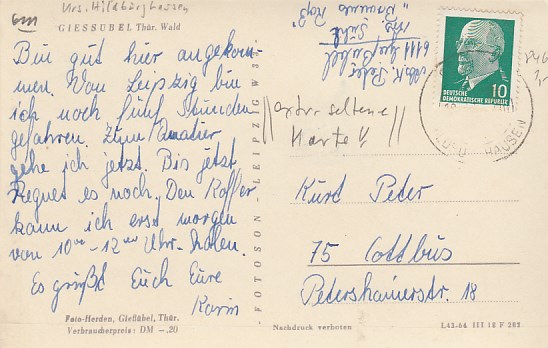 Krs. Hildburghausen
6111
GIESSÜBEL Thür. Wald
Bin gut hier angekom-
men. Von Leipzig bin
ich noch fünf Stunden
gefahren. Zum Quartier
gehe ich jetzt. Bis jetzt
Regnet es noch. Den Koffer
kann ich erst morgen
von 10 - 12 Uhr holen.
Es grüßt Euch Eure
Karin
Foto-Herden, Gießübel, Thür.
Verbraucherpreis: DM -,20
FOTOSON - LEIPZIG W 33
Abs. K. Peter
6111 Gießübel
Krs. Suhl
10
DEUTSCHE
DEMOKRATISCHE REPUBLIK
HAUSEN
extrem seltene
Karte!!
Kurt Peter
75 Cottbus
Petershainerstr. 18
Nachdruck verboten
L43-64 III 18 F 282